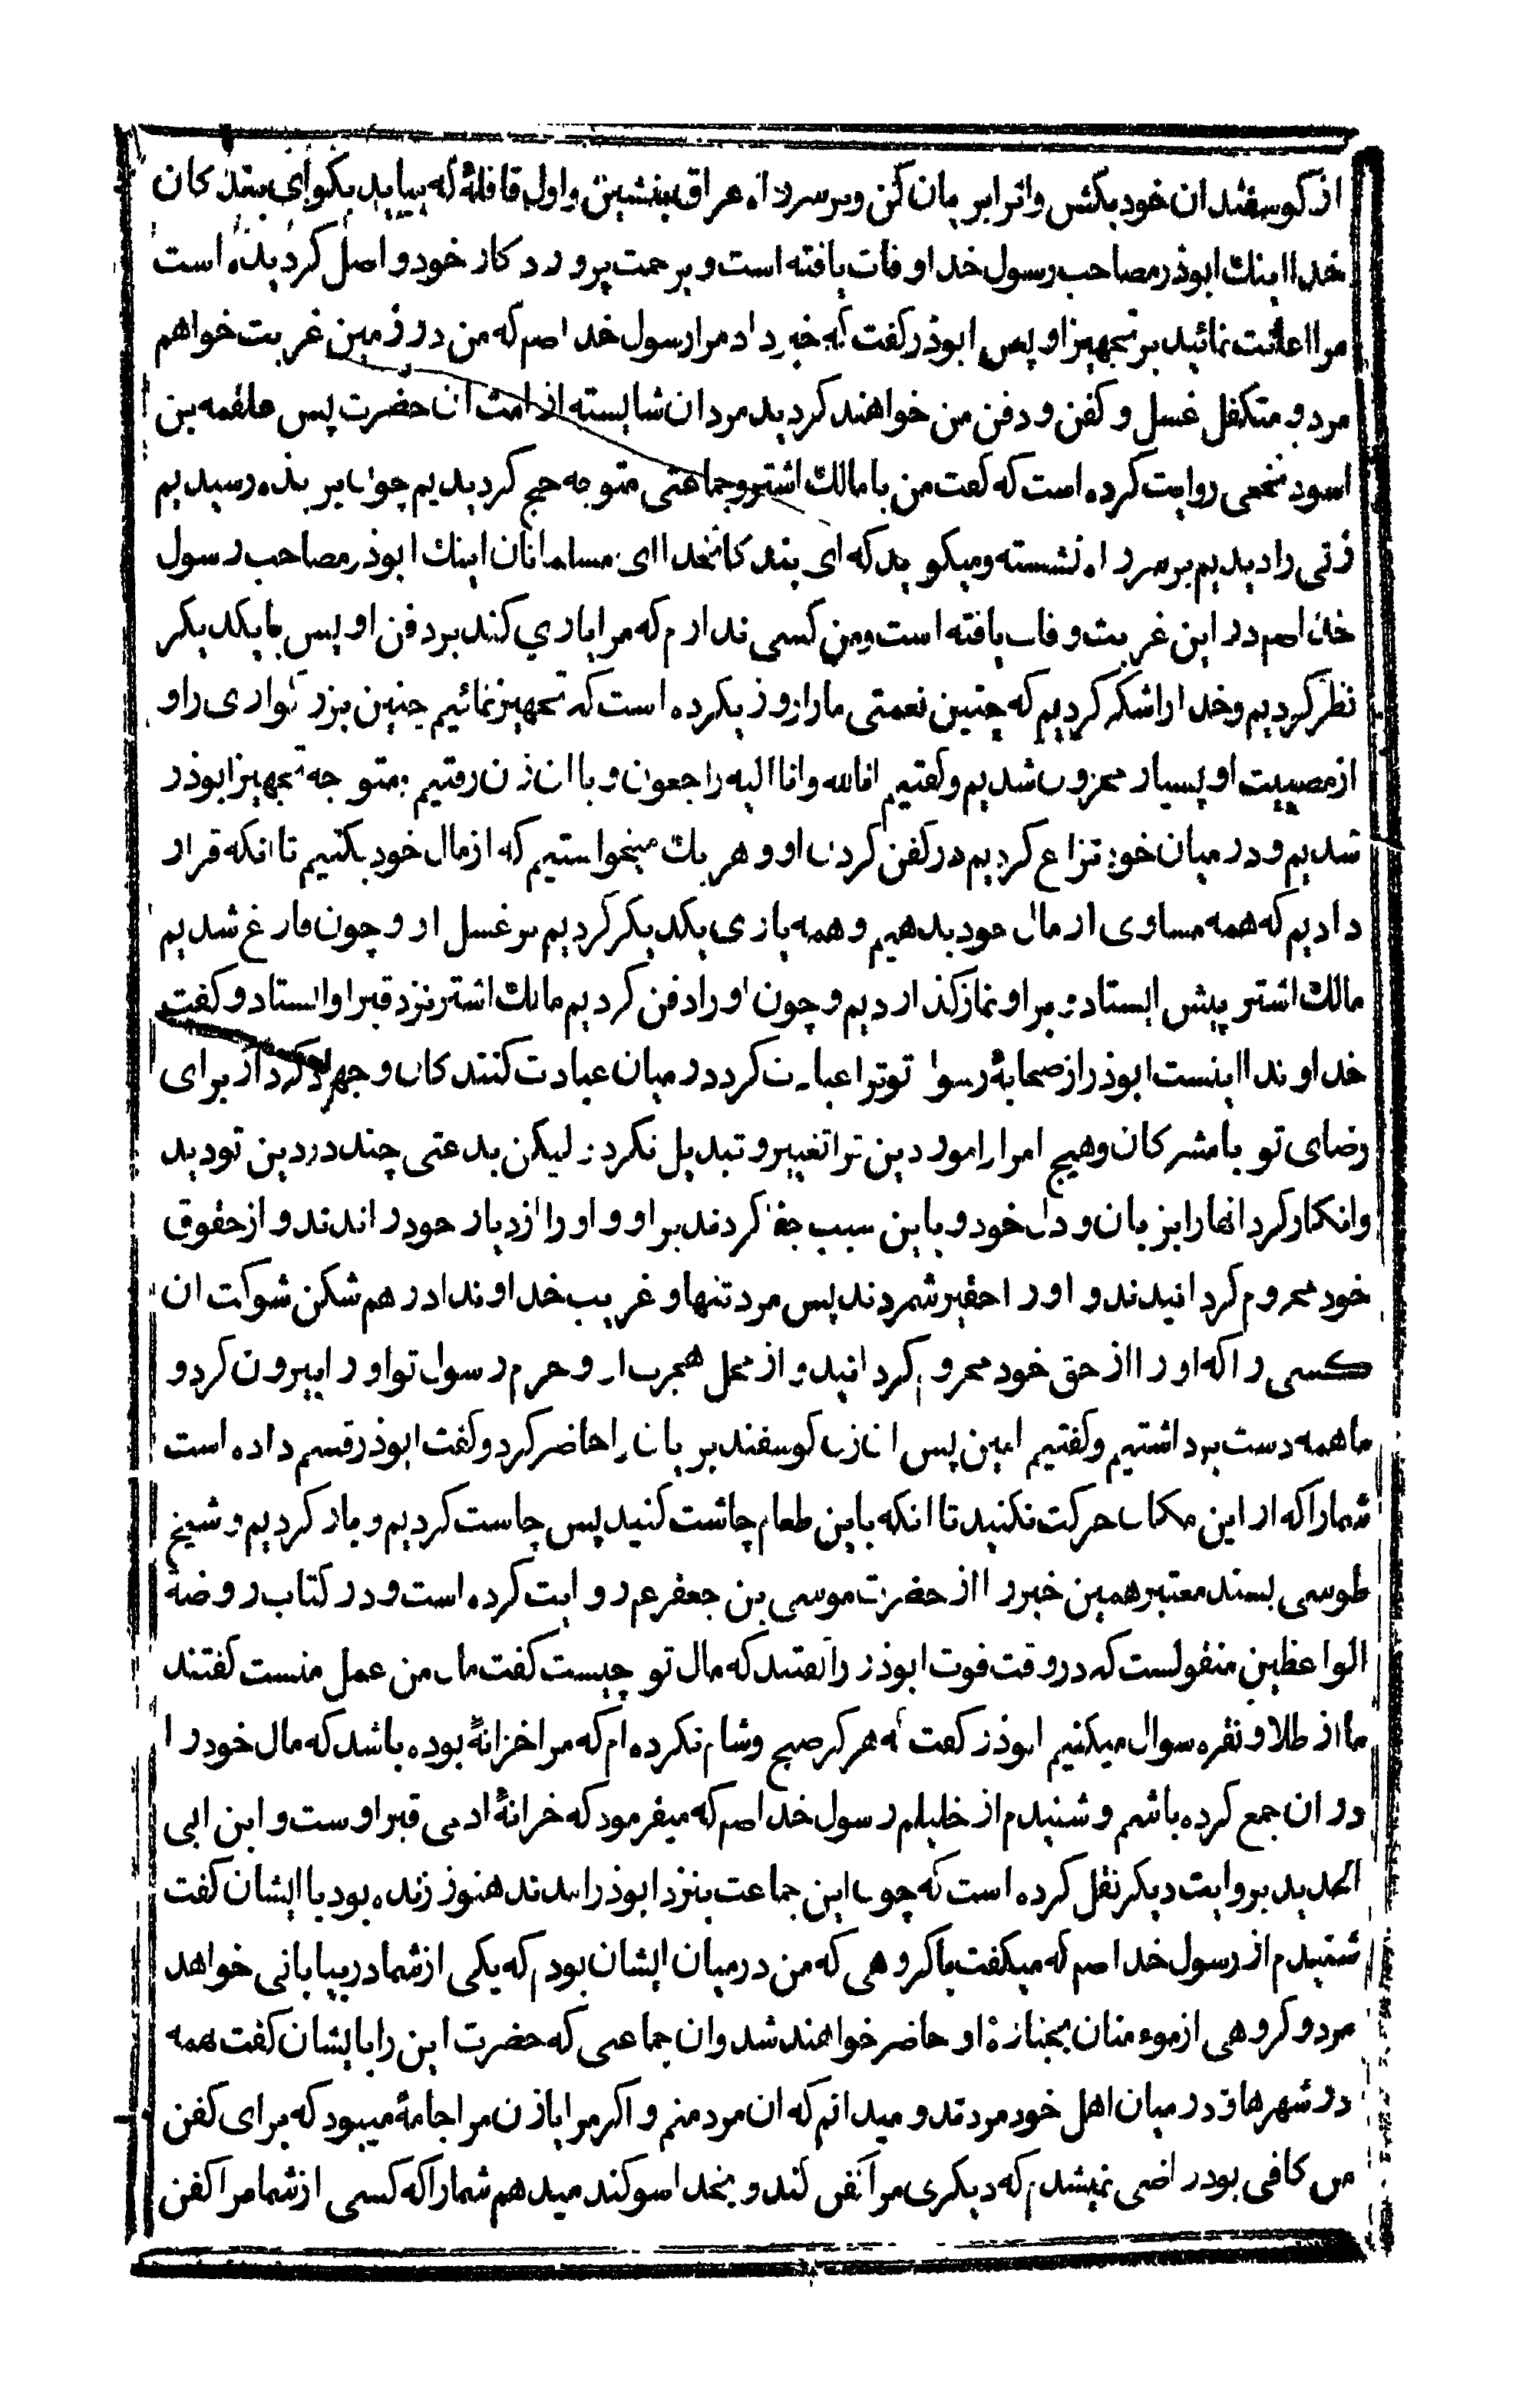 از کوسفندان خود بکش و انرا بریان کن و بر سر راه عراق بنشین و اول قافلهٔ که بیاید بکو ای بندکان
خدا اینك ابوذر مصاحب رسول خدا وفات یافته است و برحمت پروردکار خود واصل کردیده است
مرا اعانت نمائید بر تجهیز او پس ابوذر کفت که خبر داد مرا رسول خدا صم که من در زمین غربت خواهم
مرد و متکفل غسل و کفن و دفن من خواهند کردید مردان شایسته از امت ان حضرت پس علقمه بن
اسود نخعی روایت کرده است که کفت من با مالك اشتر و جماعتی متوجه حج کردیدیم چون بربذه رسیدیم
زنی را دیدیم بر سر راه نشسته و میکوید که ای بندکانخدا ای مسلمانان اینك ابوذر مصاحب رسول
خدا صم در این غربت وفات یافته است و من کسی ندارم که مرا یاری کند بر دفن او پس بایکدیکر
نظر کردیم و خدا را شکر کردیم که چنین نعمتی ما را روزیکرده است که تجهیز نمائیم چنین بزرکواری را و
از مصیبت او بسیار محزون شدیم و کفتیم انا لله و انا الیه راجعون و با ان زن رفتیم و متوجه تجهیز ابوذر
شدیم و در میان خود نزاع کردیم در کفن کردن او و هر یك میخواستیم که از مال خود بکنیم تا انکه قرار
دادیم که همه مساوی از مال خود بدهیم و همه یاری یکدیکر کردیم بر غسل او و چون فارغ شدیم
مالك اشتر پیش ایستاد و بر او نماز کذاردیم و چون او را دفن کردیم مالك اشتر نزد قبر او ایستاد و کفت
خداوندا اینست ابوذر از صحابهٔ رسول تو ترا عبادت کرد در میان عبادت کنندکان و جهاد کرد از برای
رضای تو با مشرکان و هیچ امر از امور دین ترا تغییر و تبدیل نکرد و لیکن بدعتی چند در دین تو دید
و انکار کرد انها را بزبان و دل خود و باین سبب جفا کردند بر او و او را از دیار خود راندند و از حقوق
خود محروم کردانیدند و او را حقیر شمردند پس مرد تنها و غریب خداوندا درهم شکن شوکت ان
کسی را که او را از حق خود محروم کردانید و از محل هجرت او و حرم رسول تو او را بیرون کرد و
ما همه دست برداشتیم و کفتیم امین پس ان زن کوسفند بریان را حاضر کرد و کفت ابوذر قسم داده است
شما را که از این مکان حرکت نکنید تا انکه باین طعام چاشت کنید پس چاست کردیم و بار کردیم و شیخ
طوسی بسند معتبر همین خبر را از حضرت موسی بن جعفر عم روایت کرده است و در کتاب روضة
الواعظین منقولست که در وقت فوت ابوذر را کفتند که مال تو چیست کفت مال من عمل منست کفتند
ما از طلا و نقره سوال میکنیم ابوذر کفت که هرکز صبح و شام نکرده ام که مرا خزانهٔ بوده باشد که مال خود را
در ان جمع کرده باشم و شنیدم از خلیلم رسول خدا صم که میفرمود که خزانهٔ ادمی قبر اوست و ابن ابی
الحدید بروایت دیکر نقل کرده است که چون این جماعت بنزد ابوذر امدند هنوز زنده بود با ایشان کفت
شنیدم از رسول خدا صم که میکفت با کروهی که من در میان ایشان بودم که یکی از شما در بیابانی خواهد
مرد و کروهی از موءمنان بجنازهٔ او حاضر خواهند شد و ان جماعتی که حضرت این را بایشان کفت همه
در شهرها و در میان اهل خود مردند و میدانم که ان مرد منم و اکر مرا یا زن مرا جامهٔ میبود که برای کفن
من کافی بود راضی نمیشدم که دیکری مرا کفن کند و بخدا سوکند میدهم شما را که کسی از شما مرا کفن